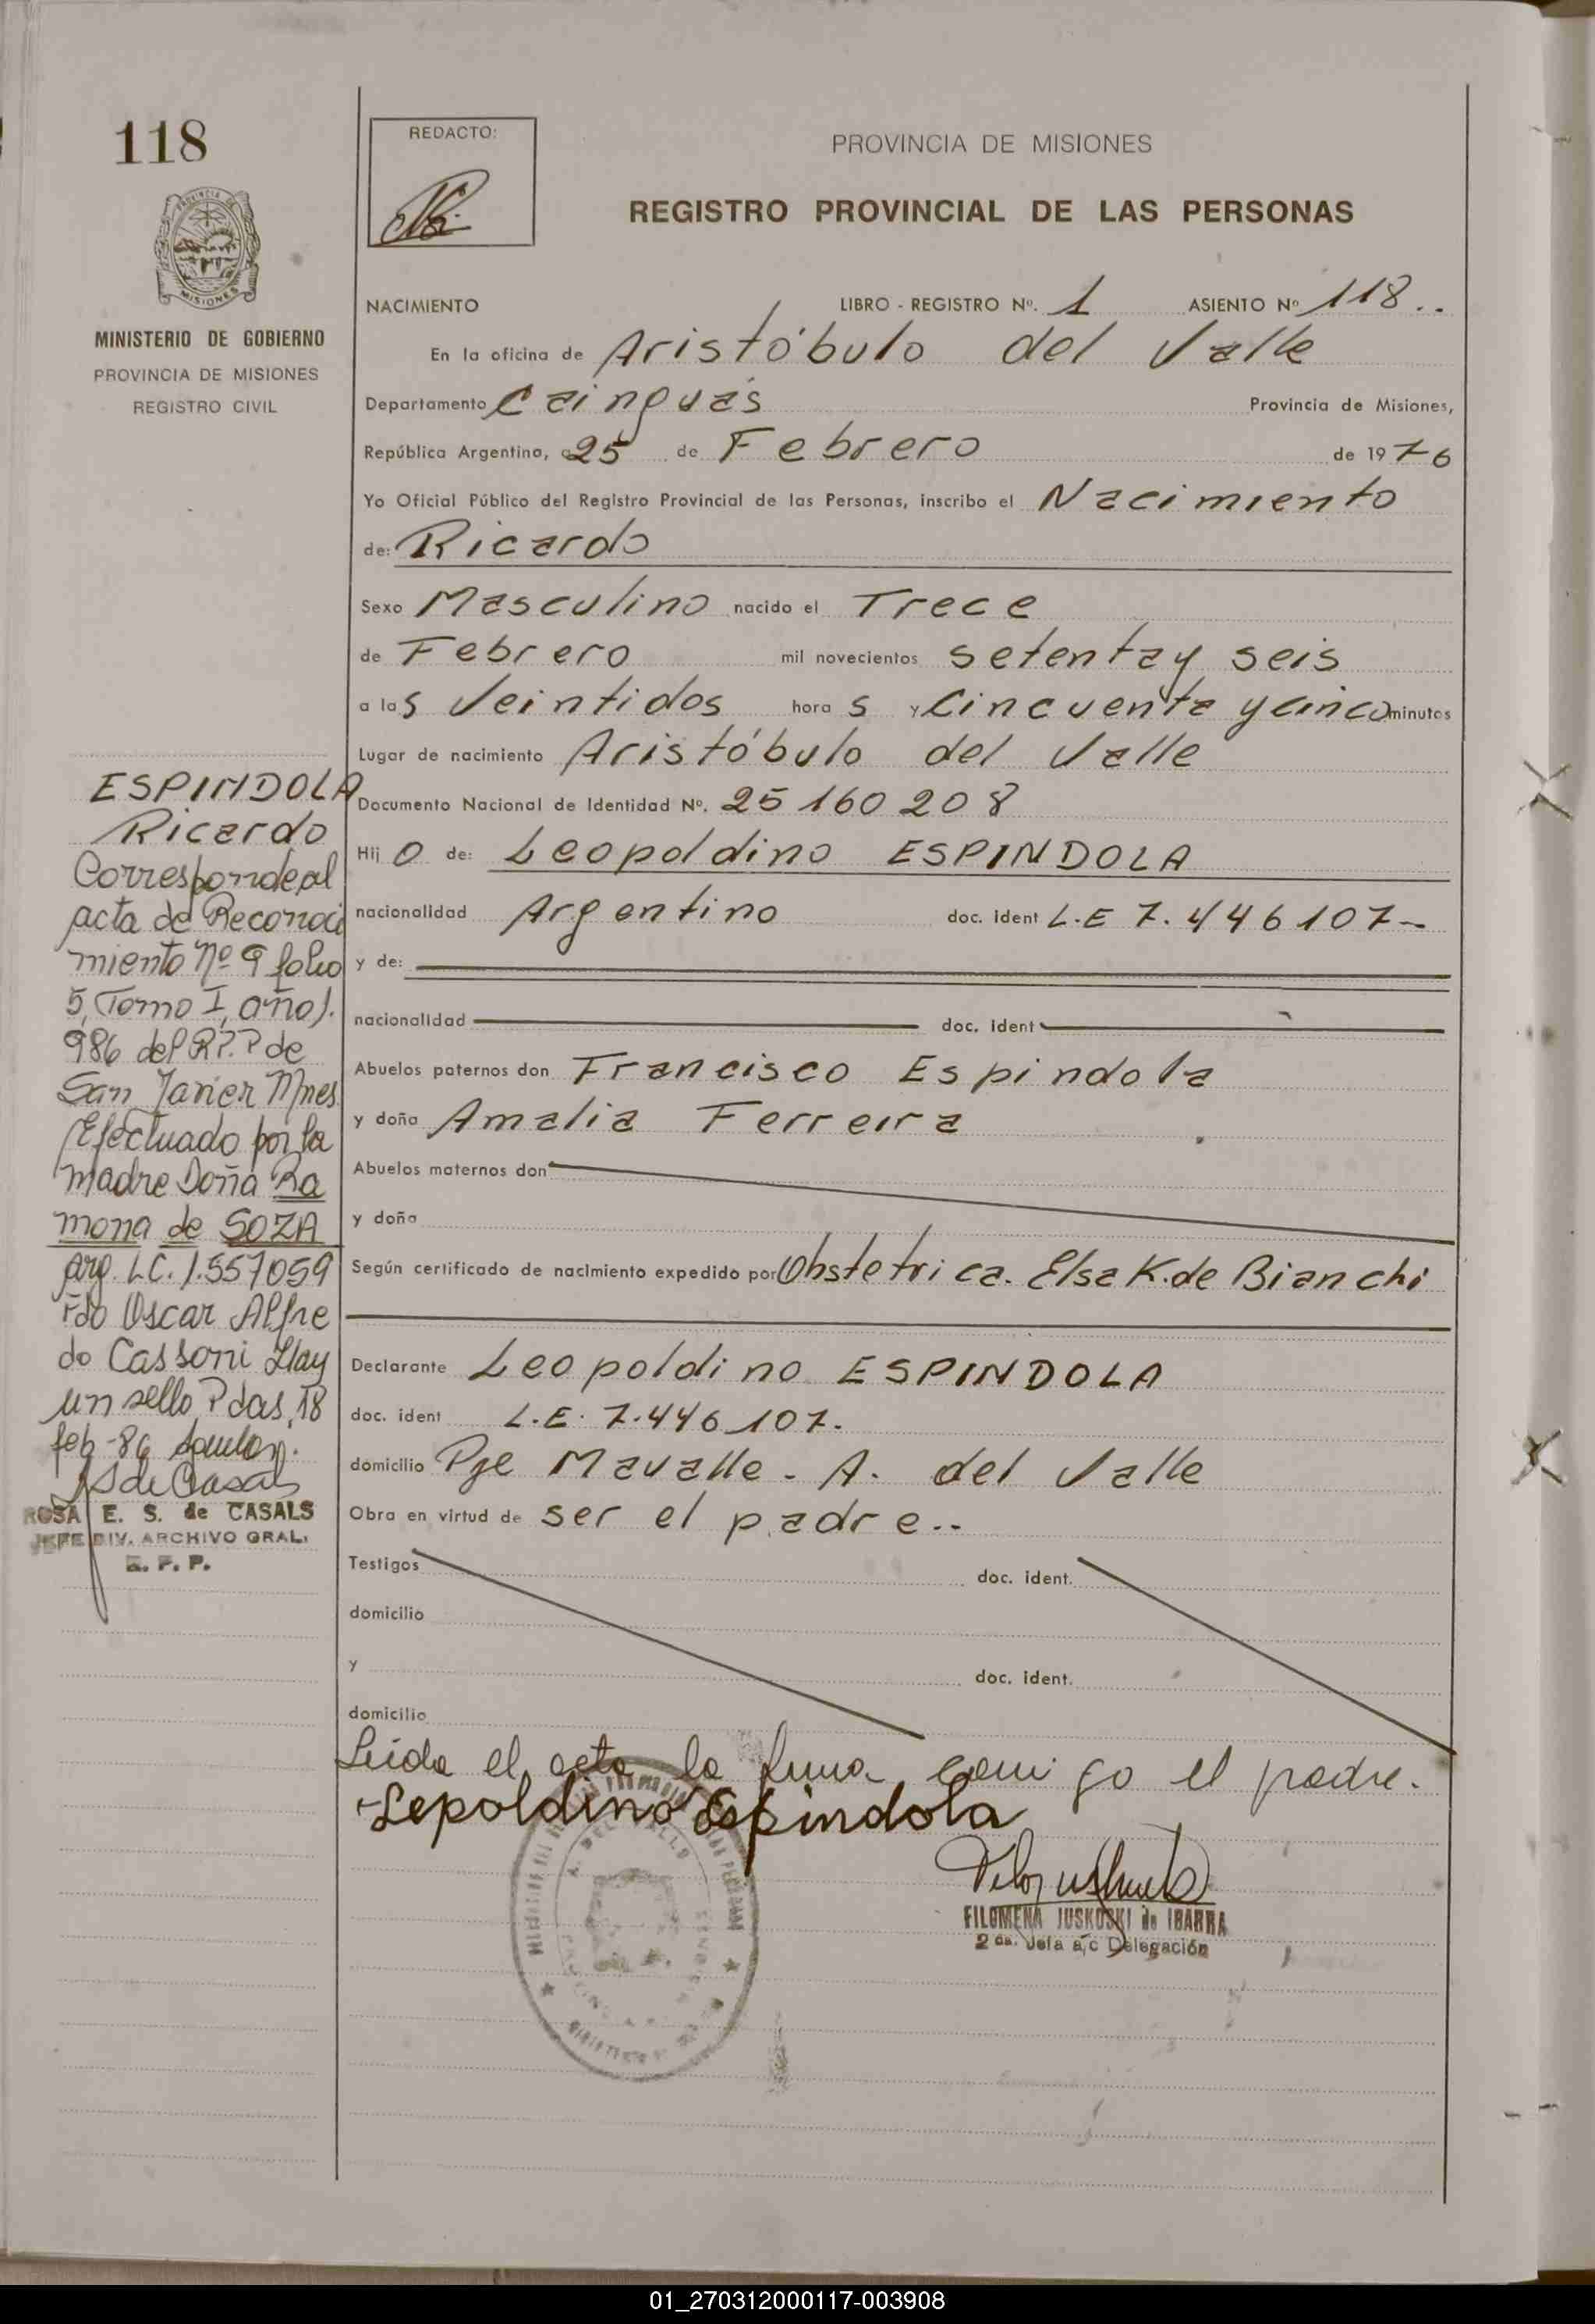 118
MINISTERIO DE GOBIERNO
PROVINCIA DE MISIONES
REGISTRO CIVIL
REDACTO:
PROVINCIA DE MISIONES
REGISTRO PROVINCIAL DE LAS PERSONAS
NACIMIENTO LIBRO - REGISTRO Nº. 1 ASIENTO Nº 118..
En la oficina de Aristóbulo del Valle
Departamento Cainguás Provincia de Misiones,
República Argentina, a 25 de Febrero de 1976
Yo Oficial Público del Registro Provincial de las Personas, inscribo el Nacimiento
de: Ricardo
Sexo Masculino nacido el Trece
de Febrero mil novecientos setenta y seis
a las Veintidos horas y Cincuenta y cinco minutos
Lugar de nacimiento Aristóbulo del Valle
Documento Nacional de Identidad Nº. 25 160 208
Hijo de: Leopoldino ESPINDOLA
nacionalidad Argentino doc. ident L.E 7.446107-
y de:
nacionalidad doc. ident
Abuelos paternos don Francisco Espindola
y doña Amalia Ferreira
Abuelos maternos don
y doña
Según certificado de nacimiento expedido por Obstetrica. Elsa K. de Bianchi
Declarante Leopoldino ESPINDOLA
doc. ident L.E. 7.446 107.
domicilio Pje Mavalle - A. del Valle
Obra en virtud de ser el padre..
Testigos doc. ident.
domicilio
y doc. ident.
domicilio
Leida el acta la firma conmigo el padre.
Lepoldino Espindola
FILOMENA JUSKOSKI de IBARRA
2da. Jefa a/c Delegación
ESPINDOLA
Ricardo
Corresponde al
acta de Reconoci
miento Nº 9 folio
5, Tomo I, año 1.
986 del R.P.P de
San Javier Mnes
Efectuado por la
madre Doña Ra
mona de SOZA
Arg. L.C. 1.557059
Fdo Oscar Alfre
do Cassoni Hay
un sello, Pdas, 18
feb-86
ROSA E. S. de CASALS
JEFE DIV. ARCHIVO GRAL.
R. P. P.
MISIONES
01_270312000117-003908